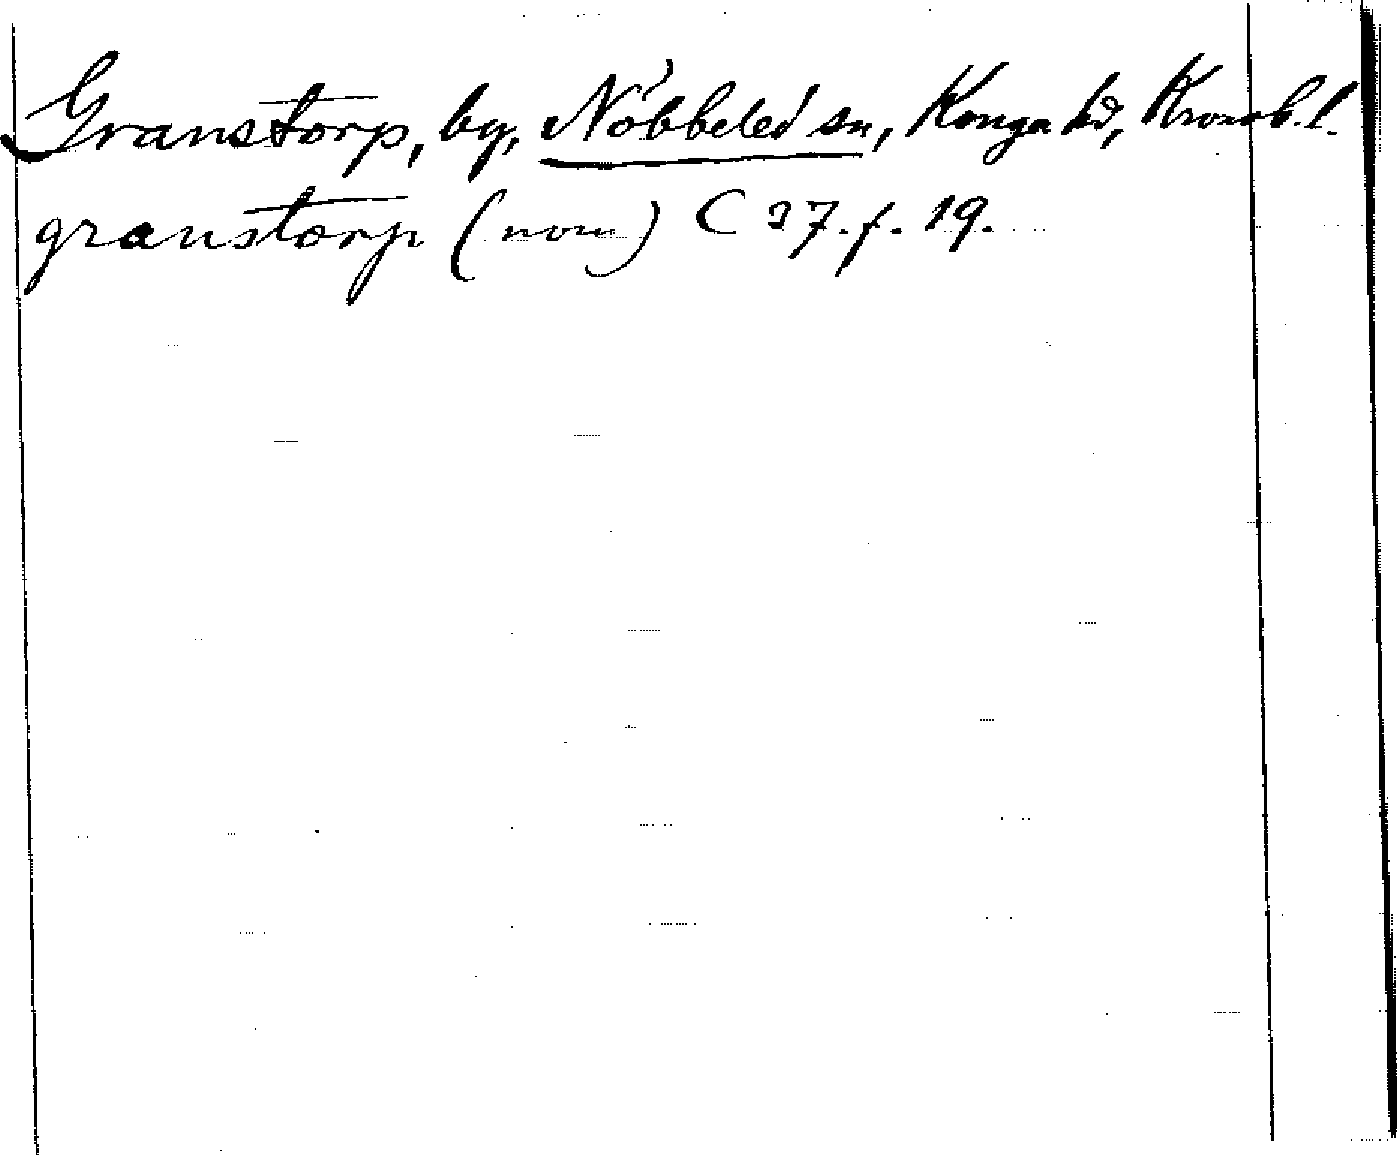 Granstorp, by, Nöbbeled sn, Konga hd, Kronob. l.
granstorp (nom) C 37. f. 19.